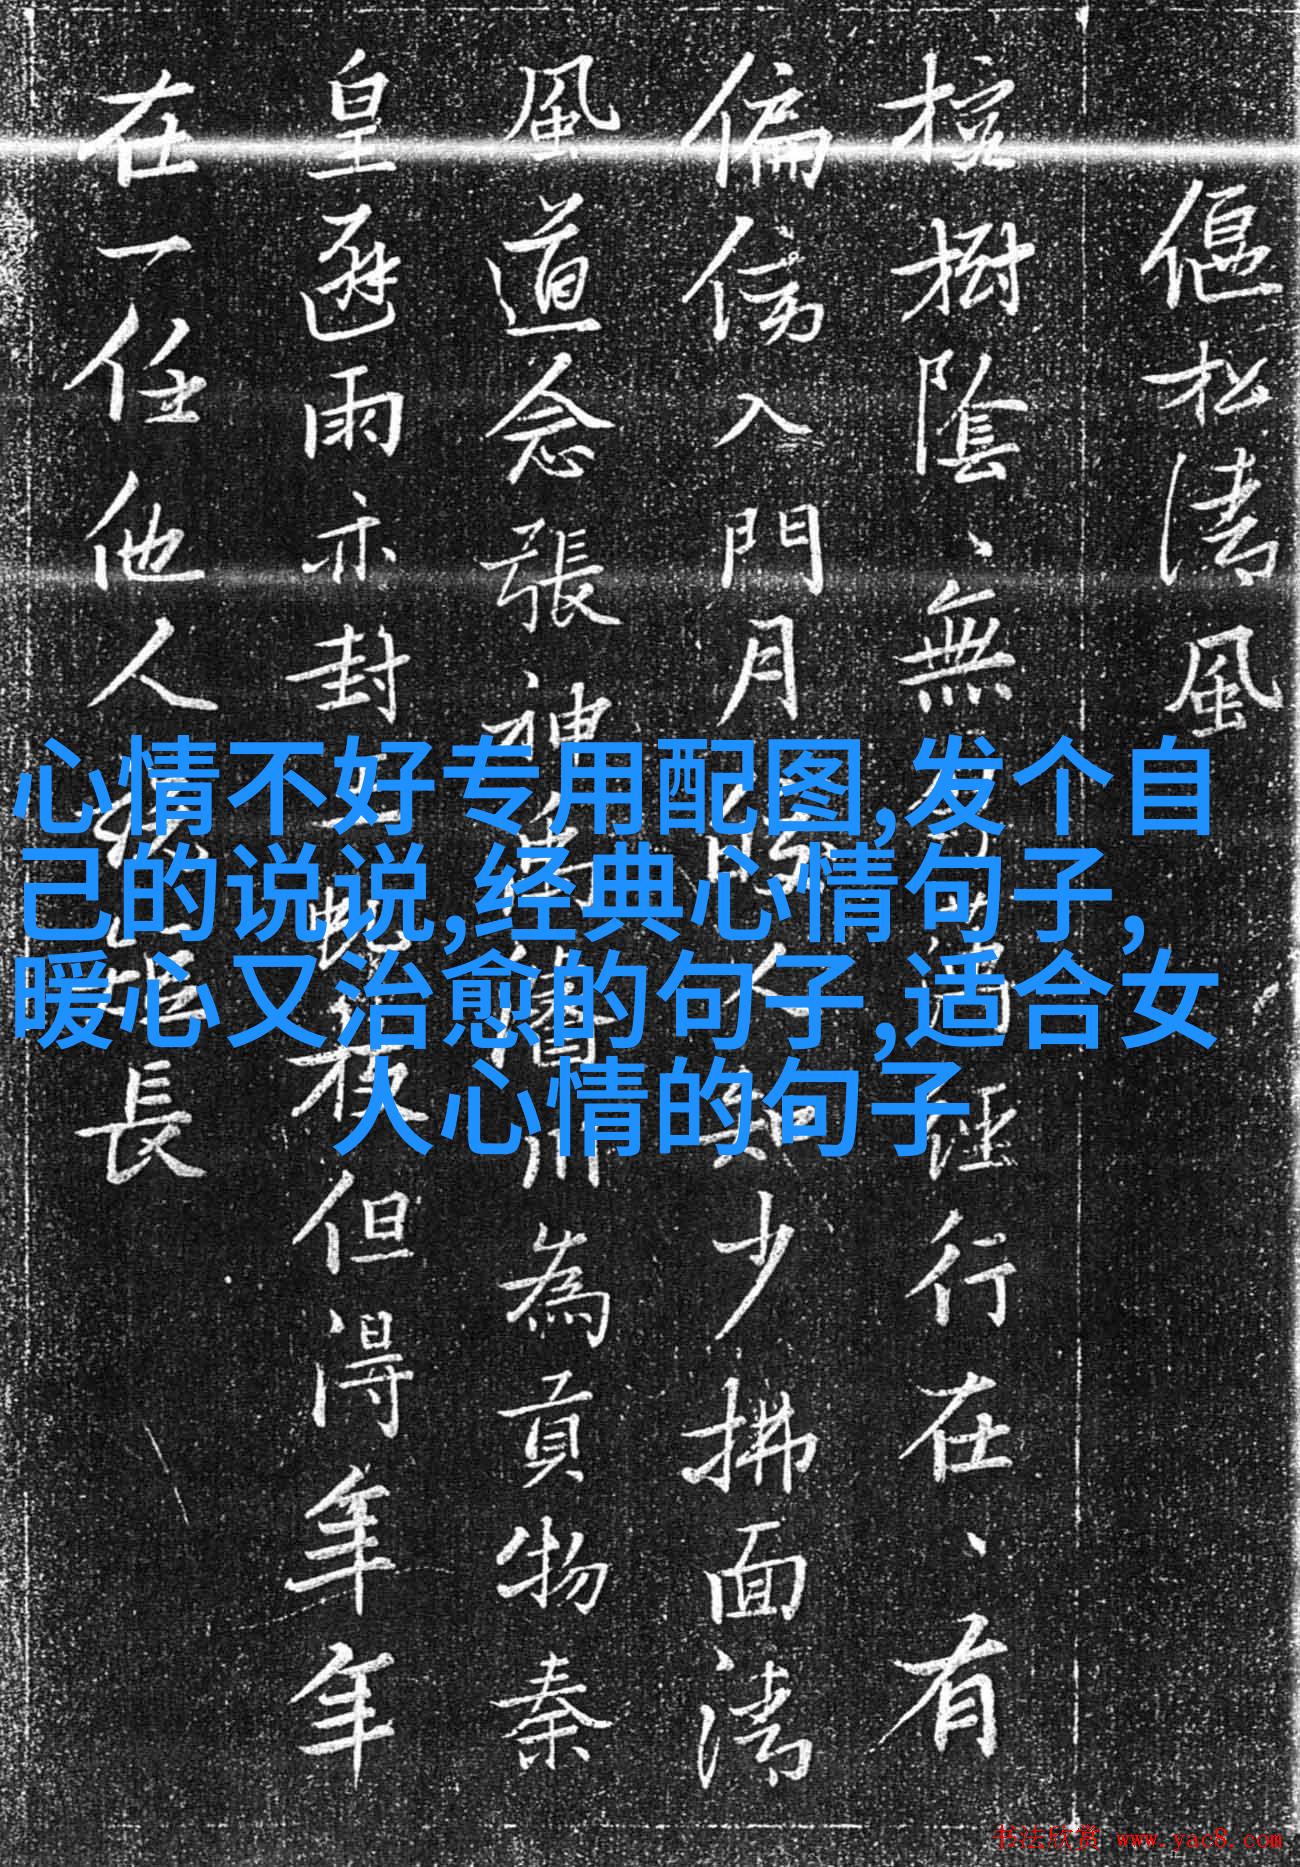 偃松清風
樹陰、無行在、有
偏傍入門月人少拂面清
風道念張神為貢物秦
皇遜雨亦封但得年年
在一任他人長
心情不好专用配图,发个自
己的说说,经典心情句子,
暖心又治愈的句子,适合女
人心情的句子
书法欣赏 www.yac8.com